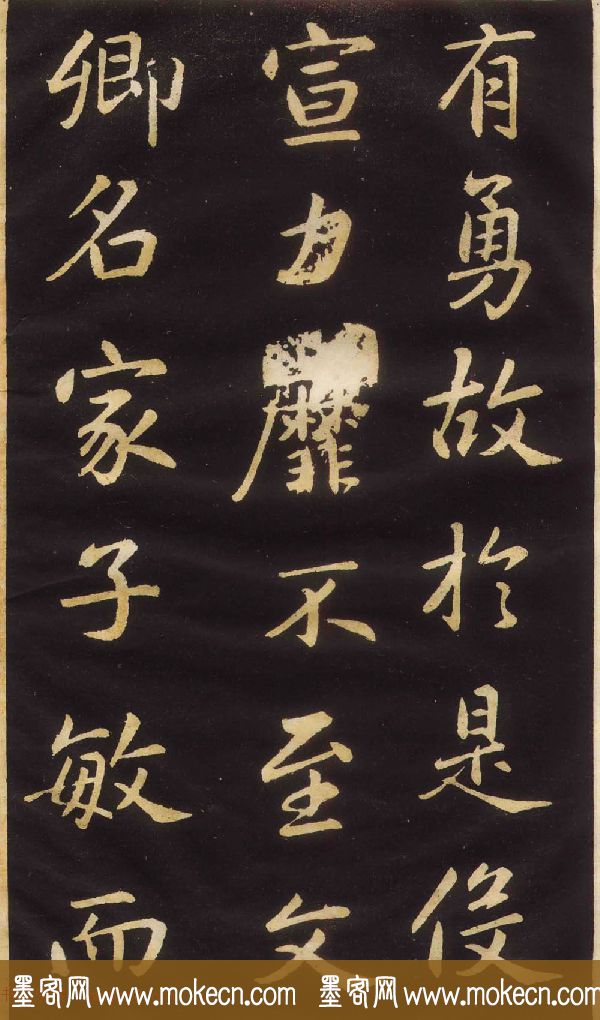 有勇故於是役
宣力靡不至文
卿名家子敏而
墨客网 www.mokecn.com 墨客网 www.mokecn.com